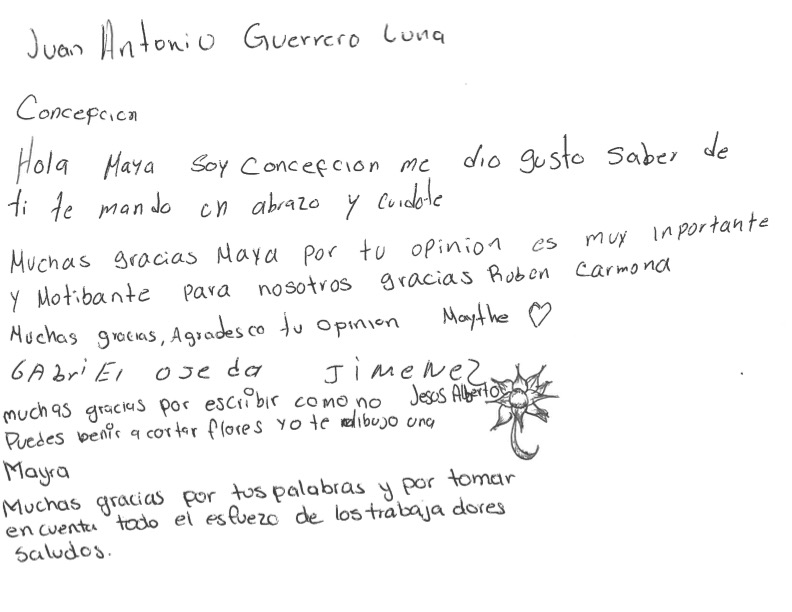 Juan Antonio Guerrero Luna
Concepcion
Hola Maya soy Concepcion me dio gusto saber de
ti te mando un abrazo y cuidate
Muchas gracias Maya por tu opinion es muy inportante
y Motibante para nosotros gracias Ruben Carmona
Muchas gracias, Agradesco tu opinion Maythe ♡
GAbriEl ojeda JiMeNez
muchas gracias por escribir como no Jesus Alberto
Puedes benir a cortar flores yo te dibujo una
Mayra
Muchas gracias por tus palabras y por tomar
en cuenta todo el esfuezo de los trabajadores
saludos.